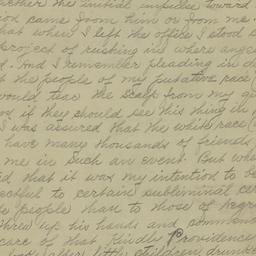 the initial impulse toward
came from him or from me.
that when I left the office I stood
project of rushing in where ang
And I remember pleading in
the people of my putative race
would tear the scalp from my
if they should see this thing in
I was assured that the white race
have many thousands of friends
me in such an event. But wh
that it was my intention to be
to certain subliminal
people than to those of Negro
threw up his hands and commend
care of that Kindly Providence
little children